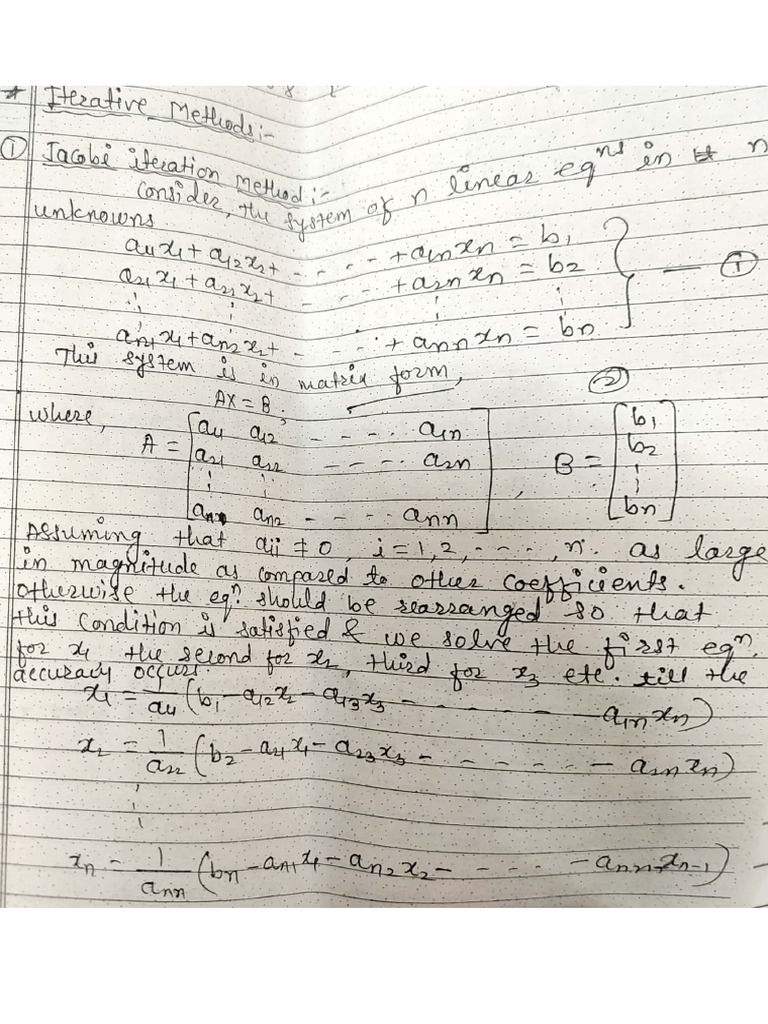 * Iterative Methods:-
① Jacobi iteration Method:-
consider, the system of n linear eqns in n
unknowns
a11x1 + a12x2 + - - - - + a1nxn = b1
a21x1 + a22x2 + - - - - + a2nxn = b2 — ①
⋮ ⋮ ⋮ ⋮
an1x1 + an2x2 + - - - - + annxn = bn
This system is in matrix form,
AX = B; ②
where,
A = [a11 a12 - - - - a1n
a21 a22 - - - - a2n
⋮ ⋮
an1 an2 - - - - ann], B = [b1
b2
⋮
bn]
Assuming that aii ≠ 0, i = 1, 2, - - - -, n. as large
in magnitude as compared to other coefficients.
Otherwise the eqn. should be rearranged so that
this condition is satisfied & we solve the first eqn.
for x1 the second for x2, third for x3 etc. till the
accuracy occurs.
x1 = 1/a11 (b1 - a12x2 - a13x3 - - - - - - - a1nxn)
x2 = 1/a22 (b2 - a21x1 - a23x3 - - - - - - - a2nxn)
⋮
xn = 1/ann (bn - an1x1 - an2x2 - - - - - - ann-1xn-1)